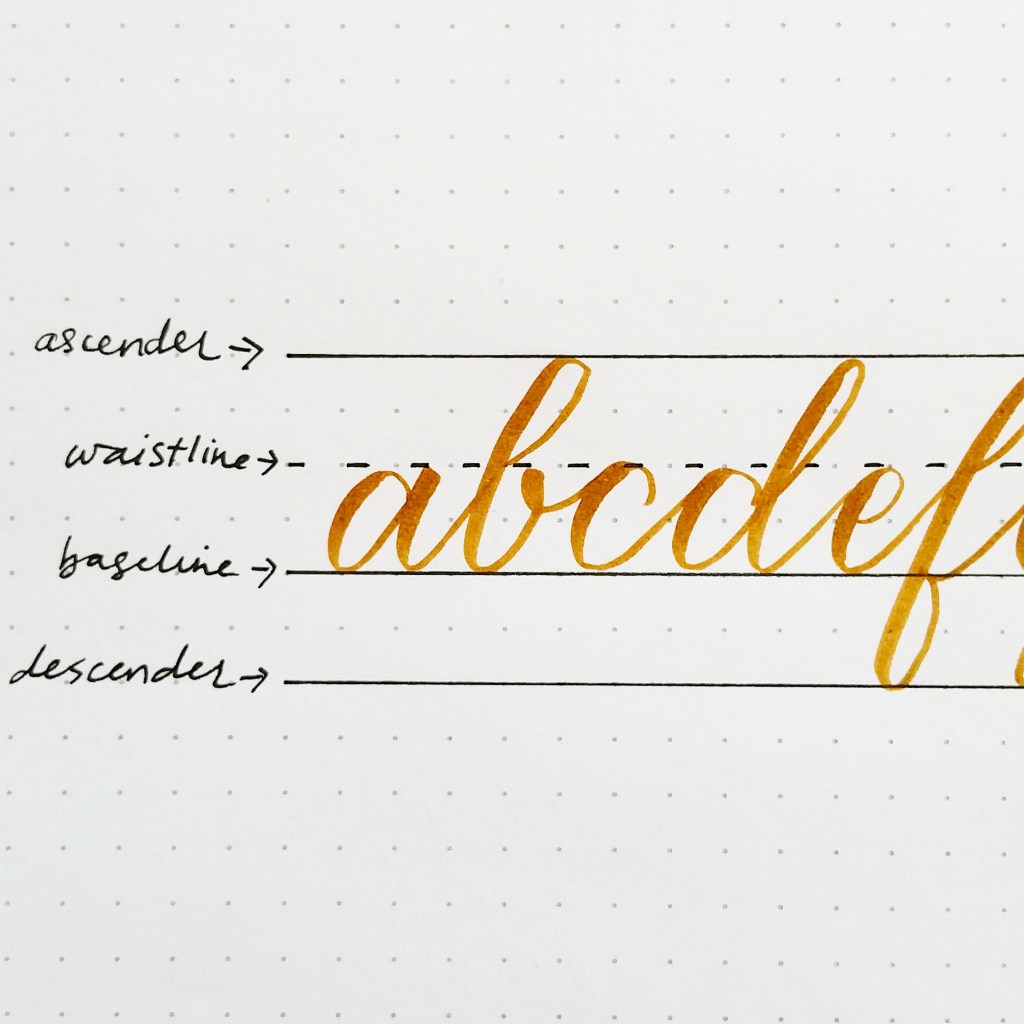 ascender →
waistline →
abcdef
baseline →
descender →